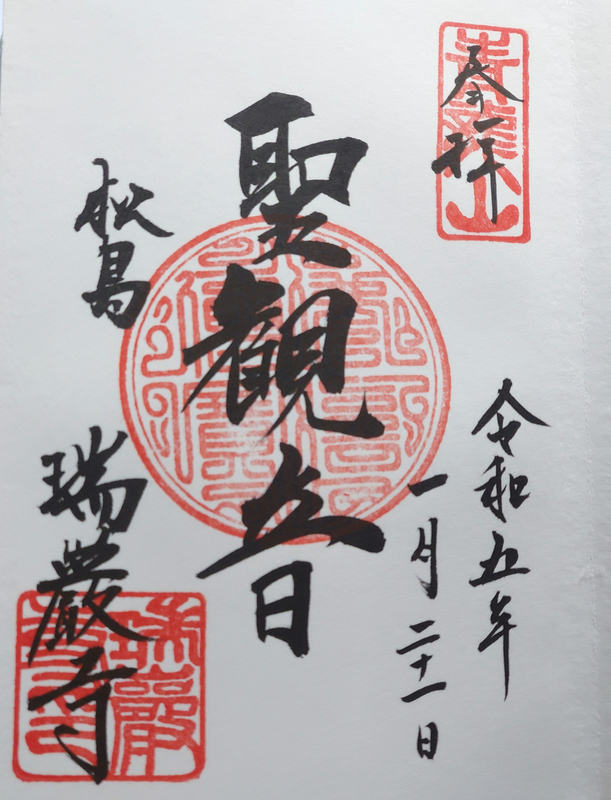 奉拝
青龍山
令和五年
一月二十一日
聖観音
松島
瑞巌寺
瑞巌